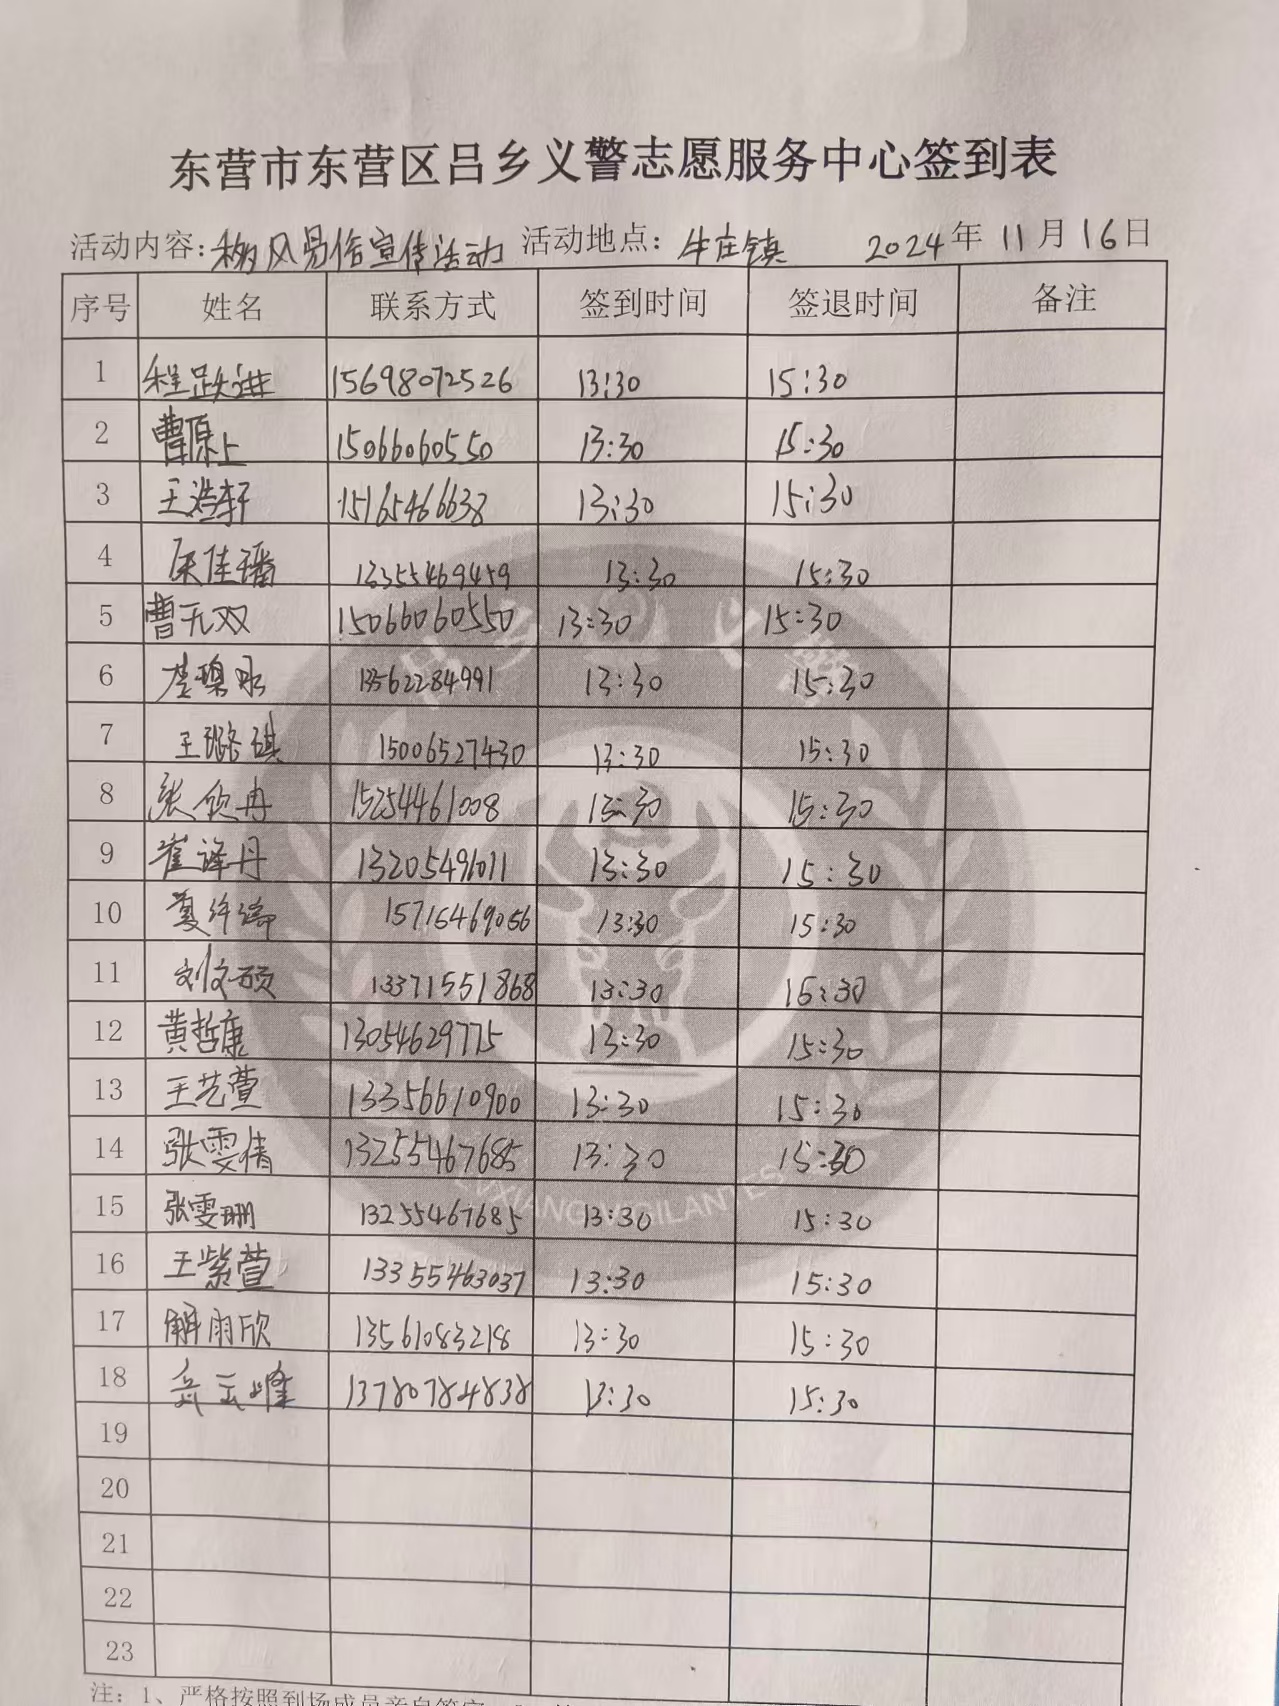 东营市东营区吕乡义警志愿服务中心签到表
活动内容:移风易俗宣传活动 活动地点: 牛庄镇 2024年11月16日
序号 姓名 联系方式 签到时间 签退时间 备注
1 程跃进 15698072526 13:30 15:30
2 曹原上 15066060550 13:30 15:30
3 王浩轩 15165466638 13:30 15:30
4 佳璠 13355469459 13:30 15:30
5 曹无双 15066060550 13:30 15:30
6 13562284991 13:30 15:30
7 王璐琪 15006527430 13:30 15:30
8 张欣冉 15254461008 13:30 15:30
9 崔译丹 13205496011 13:30 15:30
10 15716469056 13:30 15:30
11 刘文硕 13371551868 13:30 15:30
12 黄哲康 13054629775 13:30 15:30
13 王艺萱 13356610900 13:30 15:30
14 张雯倩 13255467685 13:30 15:30
15 张雯珊 13255467685 13:30 15:30
16 王紫萱 13355463037 13:30 15:30
17 解雨欣 13561083218 13:30 15:30
18 岳云峰 13780784838 13:30 15:30
19
20
21
22
23
注: 1、严格按照到场成员亲自签字
LVXIANG VIGILANTES